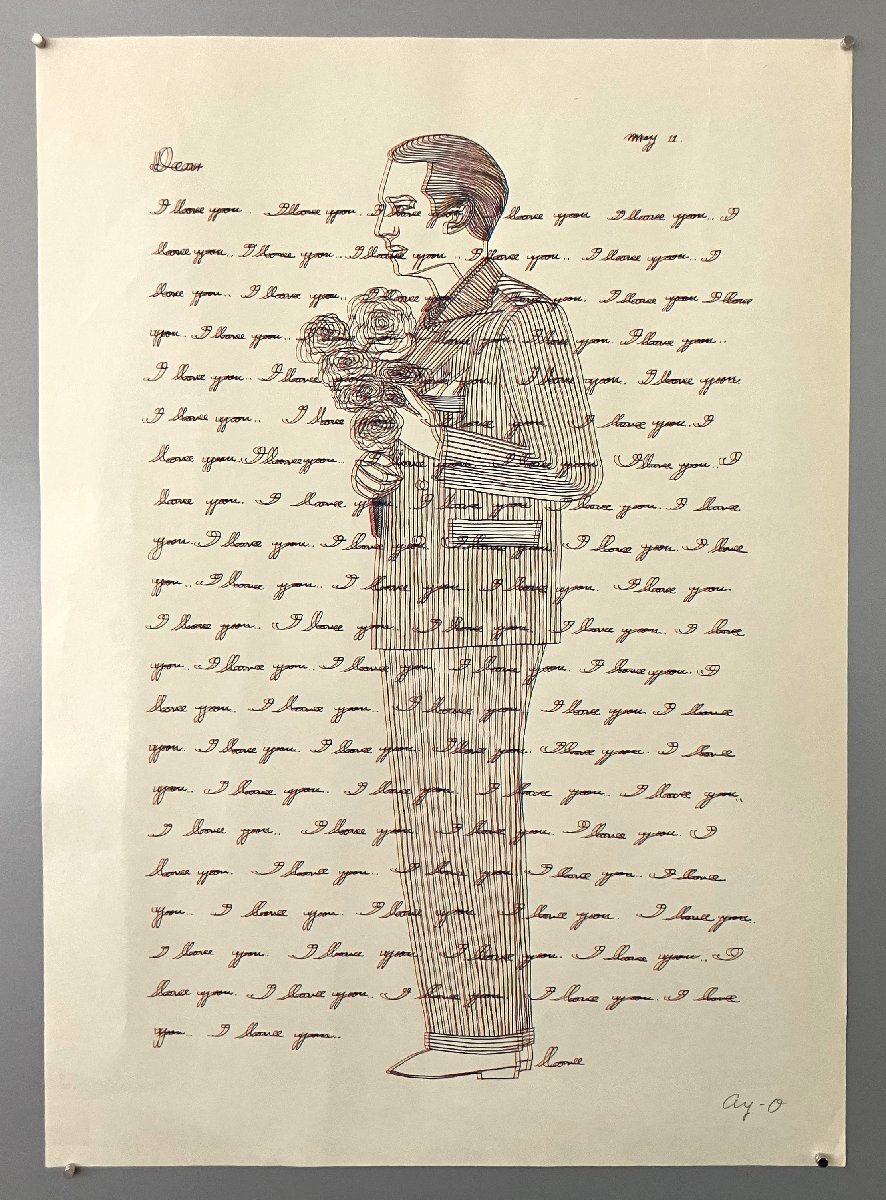 May 11.
Dear
I love you.. I love you.. I love you.. I love you I love you.. I
love you.. I love you... I love you .. I love you.. I love you.. I
love you.. I love you.. I love you. I love you. I love you I love
you.. I love you.. I love you I love you I love you. I love you..
I love you.. I love you.. I love you.. I love you. I love you.
I love you.. I love you. I love you I love you.. I
love you. I love you.. I love you. I love you. I love you.. I
love you. I love you. I love you. I love you.. I love
you.. I love you. I love you. I love you.. I love you. I love
you.. I love you.. I love you. I love you. I love you.
I love you.. I love you.. I love you. I love you.. I love
you.. I love you. I love you. I love you. I love you.. I
love you. I love you. I love you. I love you. I love
you. I love you. I love you. I love you. I love you. I love
you.. I love you. I love you. I love you. I love you..
I love you.. I love you. I love you. I love you. I
love you. I love you. I love you. I love you. I love
you.. I love you. I love you. I love you. I love you..
I love you. I love you. I love you. I love you.. I
love you. I love you. I love you. I love you. I love
you.. I love you..
Love
Ay-O